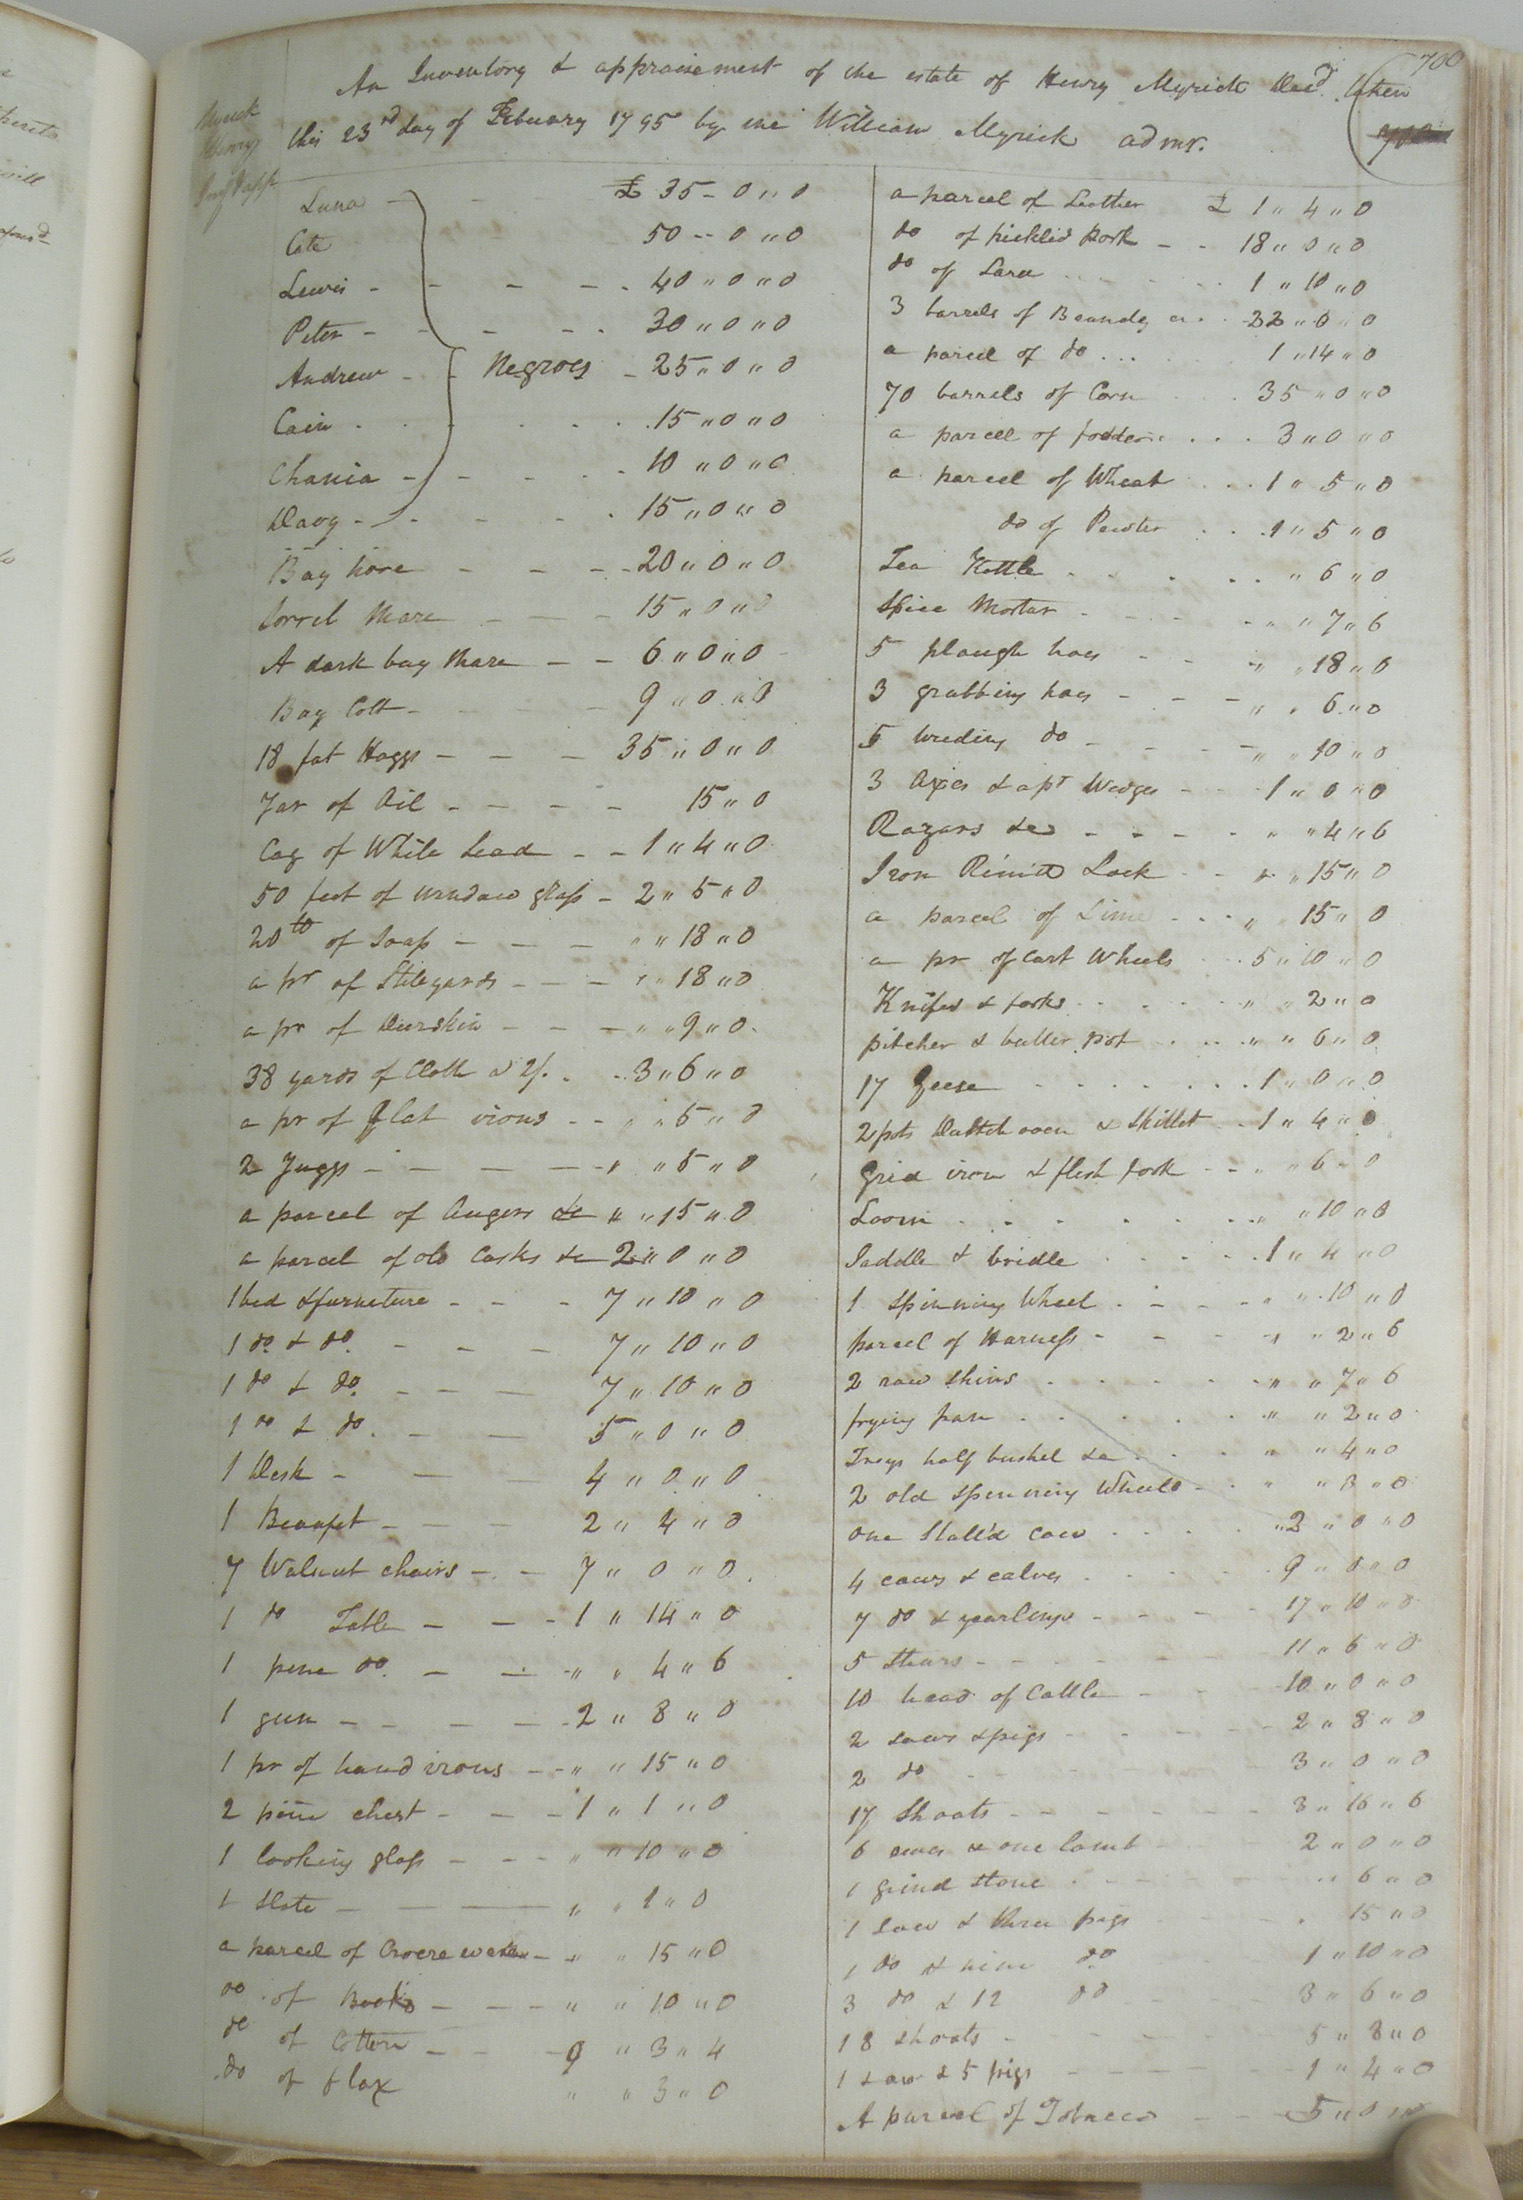 700
An Inventory & appraisement of the estate of Henry Myrick Decd. taken
this 23rd day of February 1795 by me William Myrick admr.
Myrick
Henry
Luna - £ 35 - 0 " 0
Cate 50 - 0 " 0
Lewis - - - - 40 " 0 " 0
Peter - - - - 30 " 0 " 0
Andrew - - Negroes - 25 " 0 " 0
Cain . . . . 15 " 0 " 0
Chania - - - - 10 " 0 " 0
Davy - - - - 15 " 0 " 0
Bay horse - - - - 20 " 0 " 0
Sorrel Mare - - - 15 " 0 " 0
A dark bay Mare - - 6 " 0 " 0
Bay Colt - - - 9 " 0 " 0
18 fat Hoggs - - - 35 " 0 " 0
Jar of Oil - - - - 15 " 0
Cag of White Lead - - 1 " 4 " 0
50 feet of window glass - 2 " 5 " 0
20 lb of Soap - - - " " 18 " 0
a pr of Stilyards - - - " " 18 " 0
a pr of Deerskin - - - " " 9 " 0
38 yards of Cloth a 2/. . . 3 " 6 " 0
a pr of flat irons - - " " 5 " 0
2 Juggs - - - - " " 5 " 0
a parcel of Augers &c " " 15 " 0
a parcel of old Casks &c 2 " 0 " 0
1 bed & furneture - - - 7 " 10 " 0
1 do. & do. - - - 7 " 10 " 0
1 do & do. - - - 7 " 10 " 0
1 do & do. - - 5 " 0 " 0
1 Desk - - - 4 " 0 " 0
1 Beaufet - - - 2 " 4 " 0
7 Walnut chairs - - 7 " 0 " 0
1 do Table - - - 1 " 14 " 0
1 pine do. - - " " 4 " 6
1 gun - - - - 2 " 8 " 0
1 pr of hand irons - - " " 15 " 0
2 pine chest - - - 1 " 1 " 0
1 looking glass - - - " " 10 " 0
1 Slate - - - " " 1 " 0
a parcel of - " " 15 " 0
do of Books - - - " " 10 " 0
do of Cotton - - - " 3 " 4
do of flax " " 3 " 0
a parcel of Leather £ 1 " 4 " 0
do of pickled Pork - - 18 " 0 " 0
do of Lard . . . . 1 " 10 " 0
3 barrels of Brandy . . 22 " 0 " 0
a parcel of do . . . 1 " 14 " 0
70 barrels of Corn . . . 35 " 0 " 0
a parcel of fodder . . . 3 " 0 " 0
a parcel of Wheat . . . 1 " 5 " 0
do of Pewter . . . 1 " 5 " 0
Tea Kettle . . . . " 6 " 0
Spice Mortar - - - - " " 7 " 6
5 plough hoes - - " " 18 " 0
3 grubbing hoes - - - " " 6 " 0
5 weeding do - - - " " 10 " 0
3 Axes & a pr Wedges - - 1 " 0 " 0
Razors &c - - - - " " 4 " 6
Iron Lock - - " " 15 " 0
a parcel of Lime - - - " " 15 " 0
a pr of Cart Wheels . . . 5 " 10 " 0
Knifes & forks . . . . " " 2 " 0
pitcher & butter pot . . . " " 6 " 0
17 Geese . . . . . . 1 " 0 " 0
2 pots Dutch oven & Skillet - 1 " 4 " 0
Grid iron & flesh fork - - " " 6 " 0
Loom . . . . . . . " " 10 " 0
Saddle & bridle . . . . . 1 " 4 " 0
1 Spinning Wheel . - - - " " 10 " 0
parcel of Harness - - - " " 2 " 6
2 raw skins . . . . . " " 7 " 6
frying pan . . . . . " " 2 " 0
Trays half bushel &c . . . " " 4 " 0
2 old spinning Wheels - . " " 3 " 0
one Stall'd Cow . . . . " 2 " 0 " 0
4 cows & calves . . . . . 9 " 0 " 0
7 do & yearlings - - - - 17 " 10 " 0
5 Stears - - - - 11 " 6 " 0
10 head of Cattle - - 10 " 0 " 0
2 sows & pigs - - - - 2 " 8 " 0
2 do - - - - 3 " 0 " 0
17 Shoats - - - - - 3 " 16 " 6
6 ewes & one lamb - - 2 " 0 " 0
1 grind stone . - - - " " 6 " 0
1 sow & three pigs " 15 " 0
1 do & nine do 1 " 10 " 0
3 do & 12 do 3 " 6 " 0
18 shoats - - - 5 " 8 " 0
1 sow & 5 pigs - - - - 1 " 4 " 0
A parcel of Tobacco - - 5 " 0 " 0